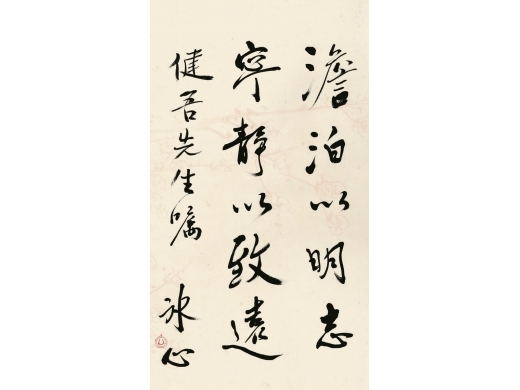 澹泊以明志
宁静以致遠
健吾先生嘱
冰心